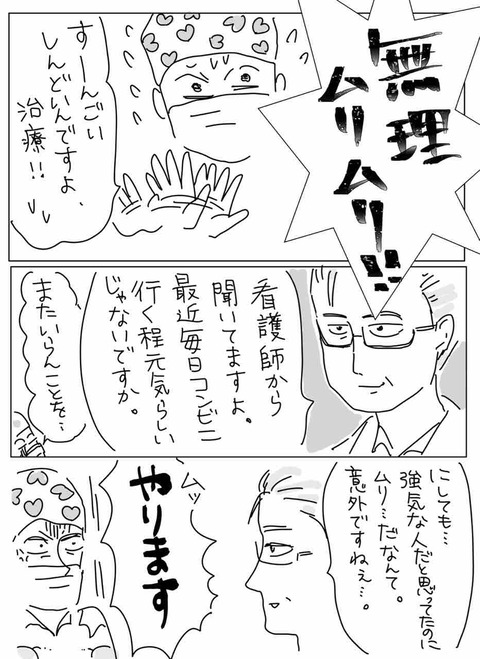 無理
ムリムリ!!
すーんごい
しんどいんですよ、
治療!!
看護師から
聞いてますよ。
最近毎日コンビニ
行く程元気らしい
じゃないですか。
またいらんことを…
にしても…
強気な人だと思ってたのに
ムリ…だなんて。
意外ですねぇ…。
ムッ
やります